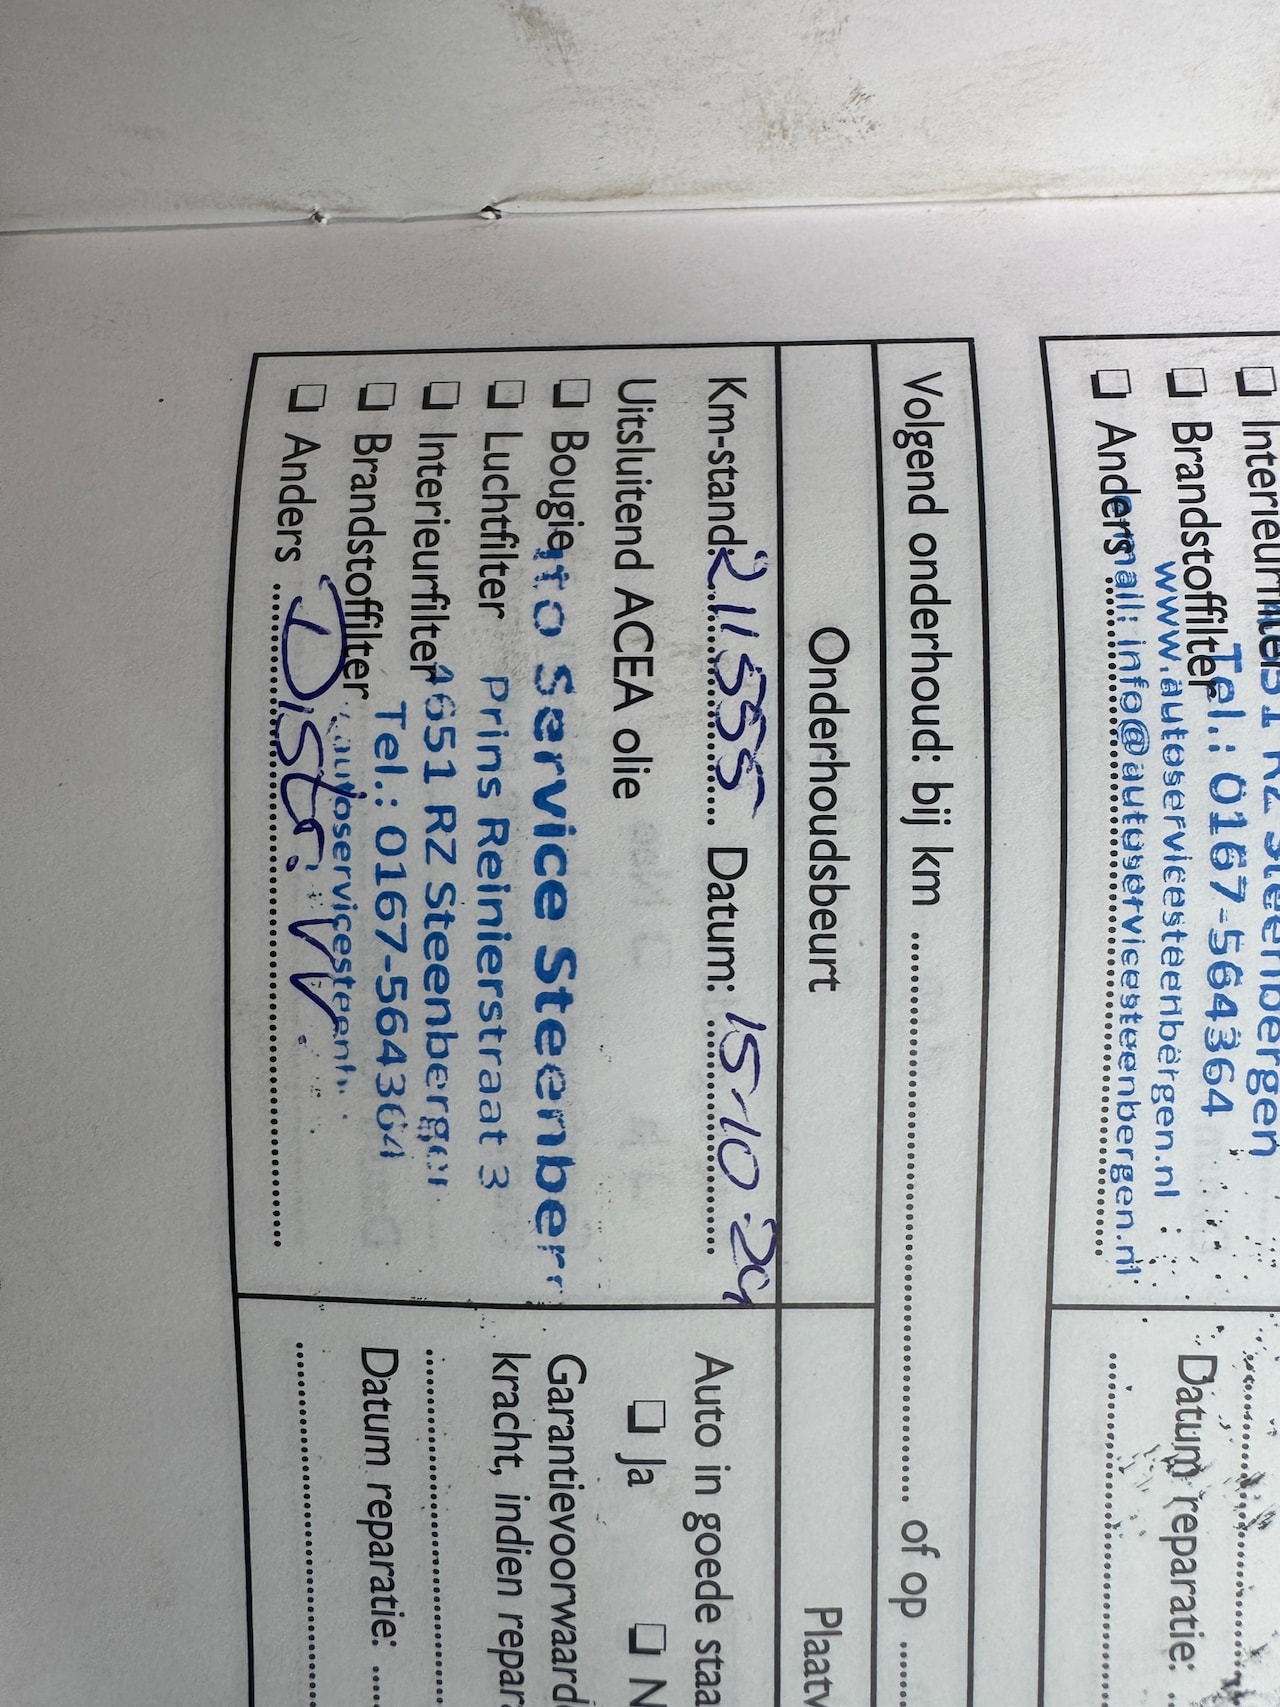 Interieurfilter
4651 RZ Steenbergen
Brandstoffilter
Tel.: 0167-564364
www.autoservicesteenbergen.nl
Anders
email: info@autoservicesteenbergen.nl
Datum reparatie:
Volgend onderhoud: bij km of op
Onderhoudsbeurt
Km-stand: 211555 Datum: 15-10-20
Uitsluitend ACEA olie
Bougie
Auto Service Steenber
Luchtfilter
Prins Reinierstraat 3
Interieurfilter
4651 RZ Steenbergen
Brandstoffilter
Tel.: 0167-564364
Anders Distr. VV.
autoservicesteenb
Auto in goede staa
Ja N
Garantievoorwaard
kracht, indien repar
Datum reparatie: